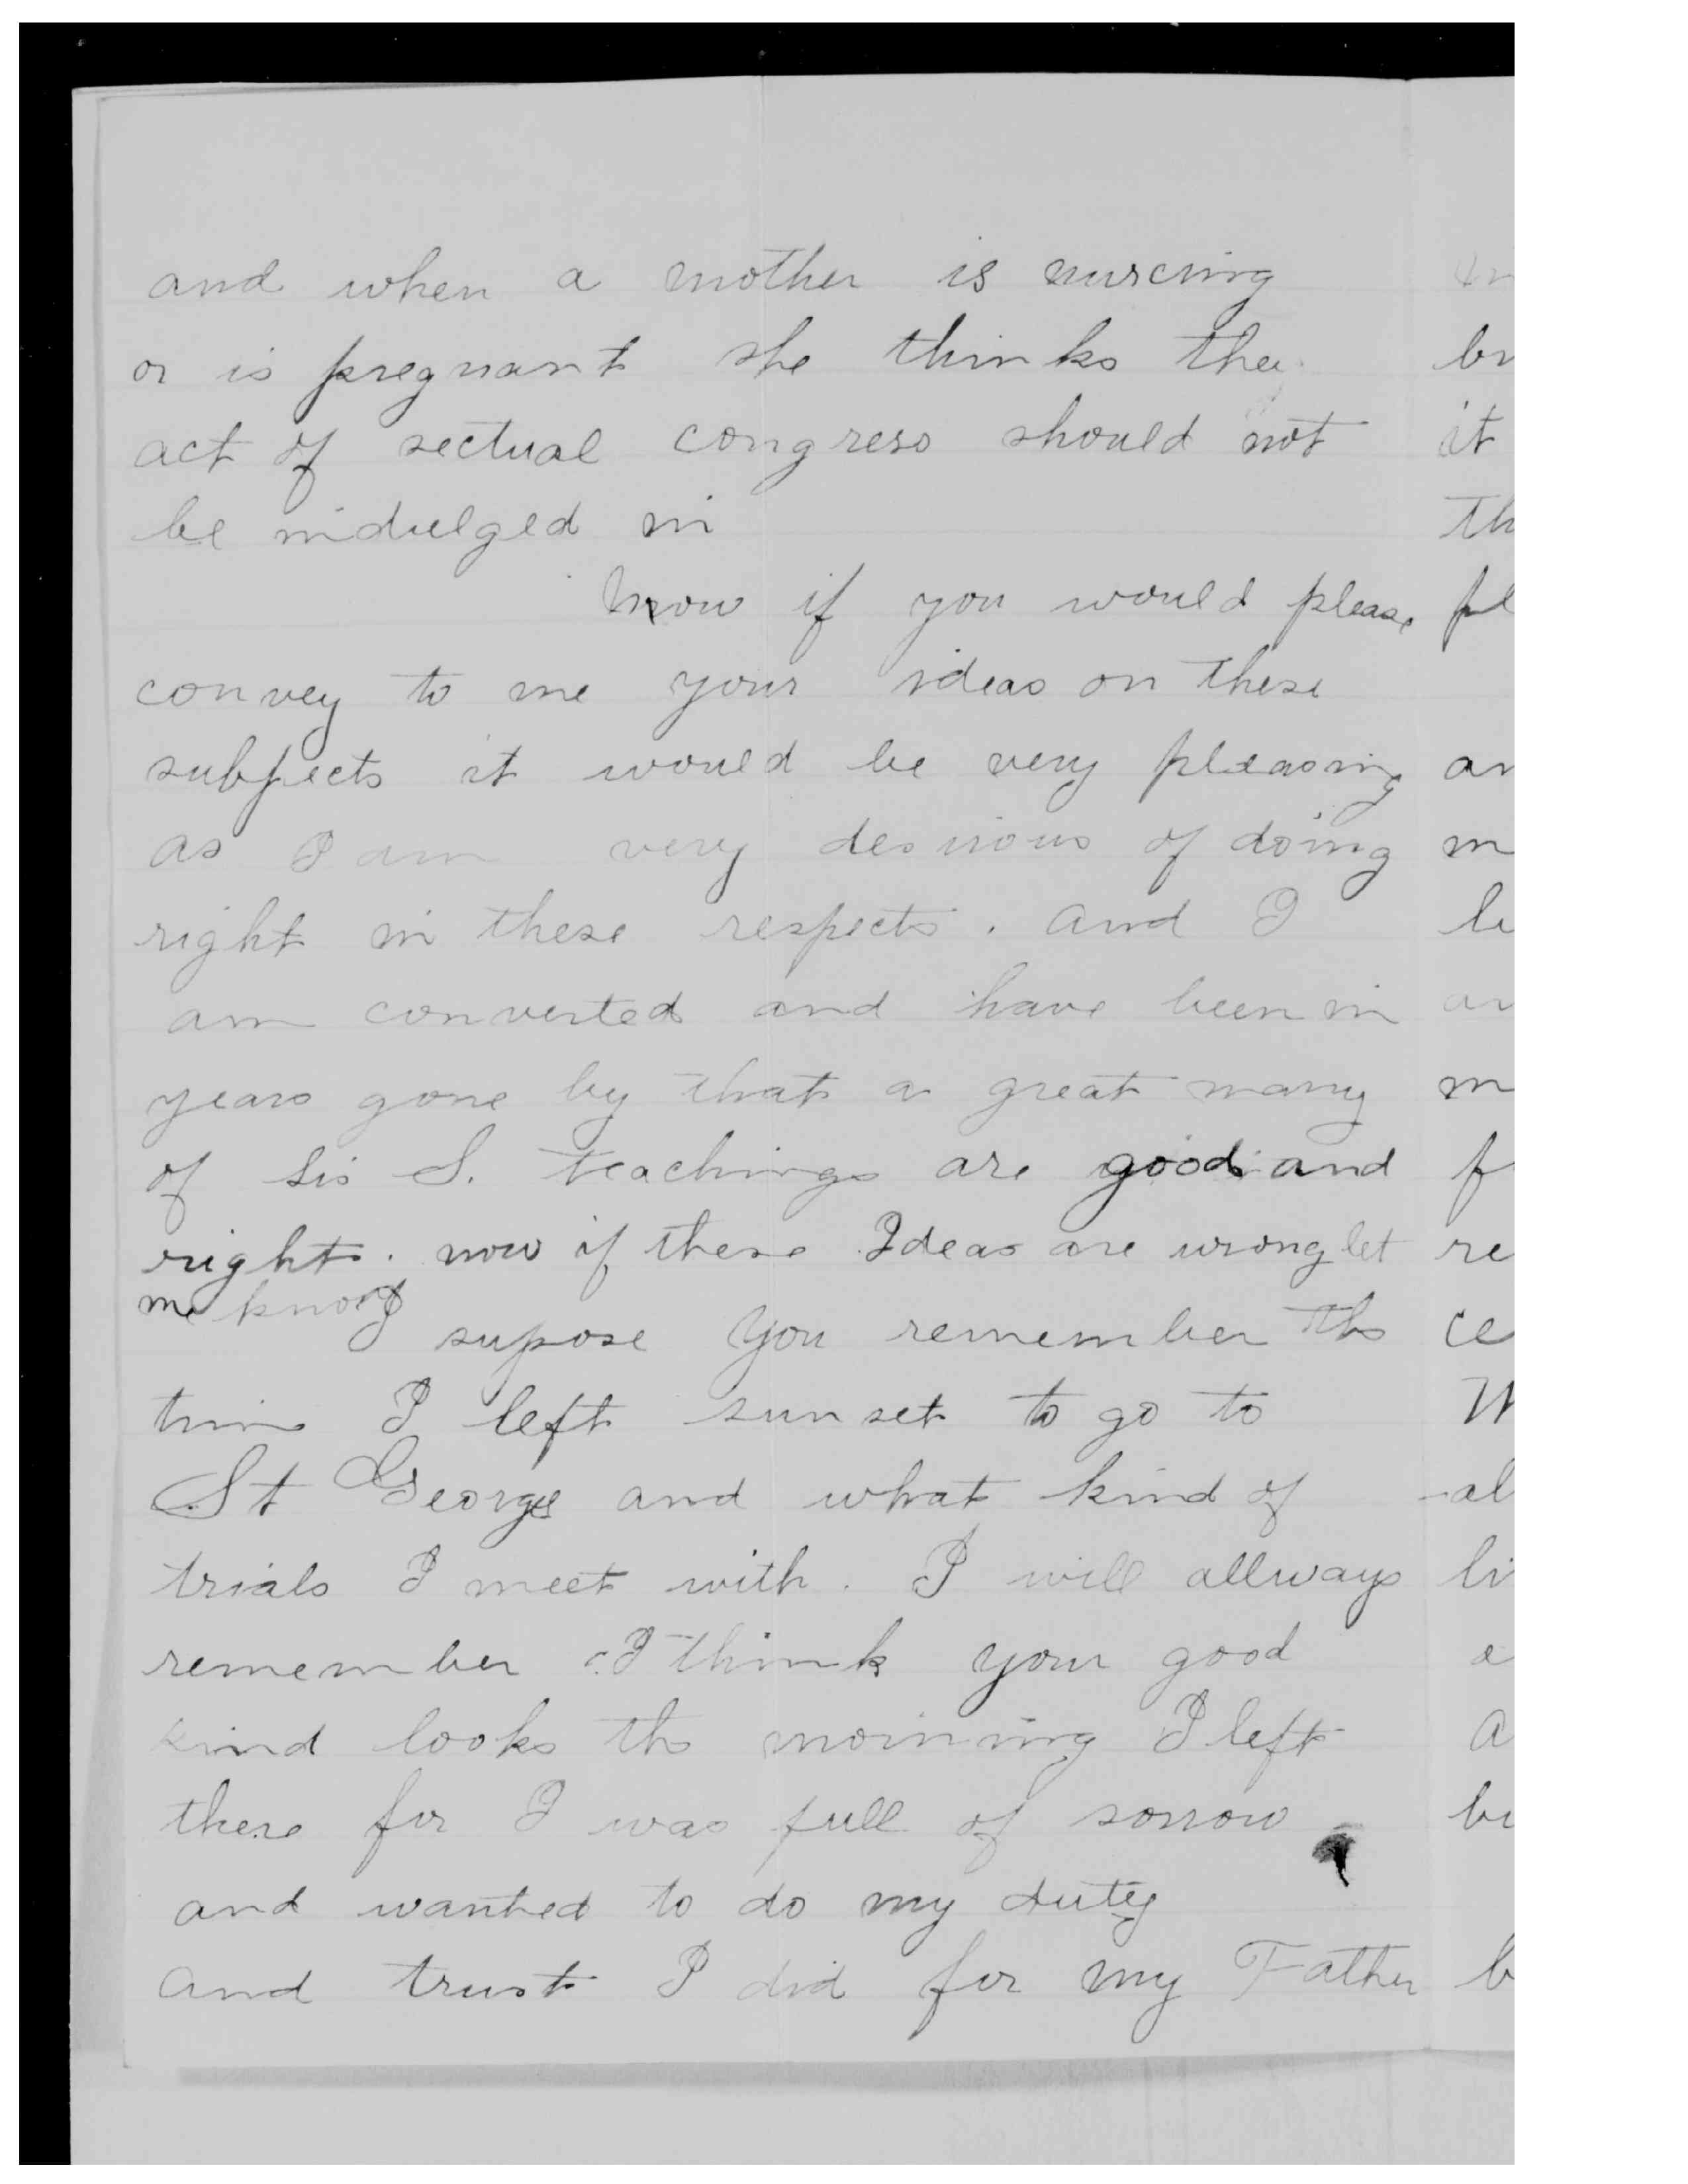 and when a mother is nurcing
or is pregnant she thinks the
act of sectual congress should not
be indulged in
now if you would please
convey to me your ideas on these
subjects it would be very pleasing
as I am very desirous of doing
right in these respects. and I
am converted and have been in
years gone by that a great many
of Sis S. teachings are good and
right. now if these Ideas are wrong let
me know
I supose you remember the
time I left sunset to go to
St George and what kind of
trials I meet with. I will allways
remember I think your good
kind looks the morning I left
there for I was full of sorrow
and wanted to do my duty
and trust I did for my Father